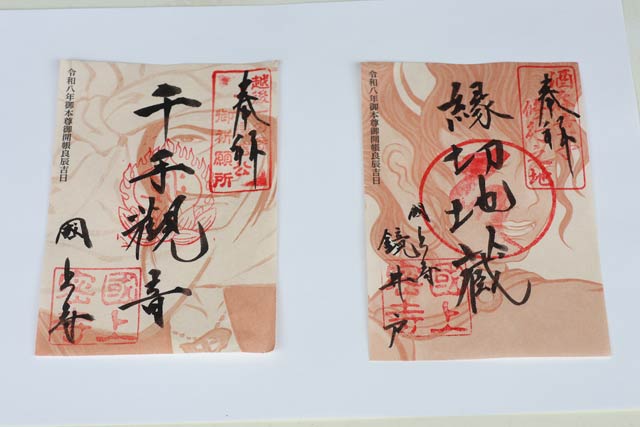 奉拝
千手觀音
國上寺
令和八年御本尊御開帳良辰吉日
御祈願所
國上
奉拝
縁切地蔵
國上寺
鏡井戸
令和八年御本尊御開帳良辰吉日
國上